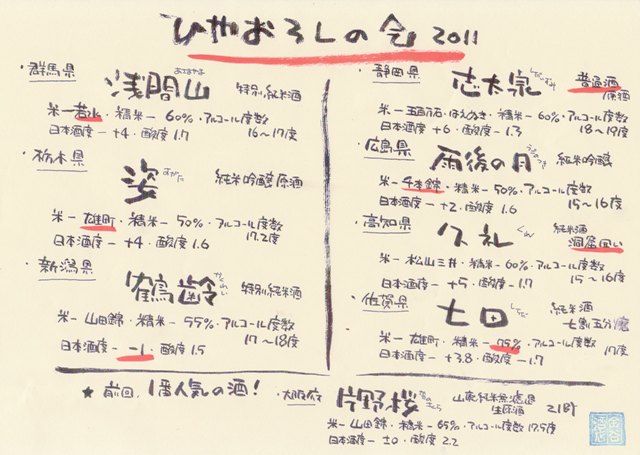 ひやおろしの会 2011
・群馬県
あさまやま
浅間山 特別純米酒
米ー若水・精米ー60%・アルコール度数
日本酒度ー+4・酸度1.7 16〜17度
・栃木県
すがた
姿 純米吟醸原酒
米ー雄町・精米ー50%・アルコール度数
日本酒度ー+4・酸度1.6 17.2度
・新潟県
鶴齢 特別純米酒
米ー山田錦・精米ー55%・アルコール度数
日本酒度ー−1・酸度1.5 17〜18度
・静岡県
志太泉 普通酒
原酒
米ー五百万石・はえぬき・精米ー60%・アルコール度数
日本酒度ー+6・酸度ー1.3 18〜19度
・広島県
雨後の月 純米吟醸
米ー千本錦・精米ー50%・アルコール度数
日本酒度ー+2・酸度ー1.6 15〜16度
・高知県
くれ
久礼 純米酒
洞窟囲い
米ー松山三井・精米ー60%・アルコール度数
日本酒度ー+5・酸度ー1.7 15〜16度
・佐賀県
しちだ
七田 純米酒
七割五分磨
米ー雄町・精米ー75%・アルコール度数
日本酒度ー+3.8・酸度ー1.7 17度
★前回、1番人気の酒!
・大阪府
片野桜 山廃純米無濾過
生原酒 21BY
米ー山田錦・精米ー65%・アルコール度数17.5度
日本酒度ー±0・酸度ー2.2